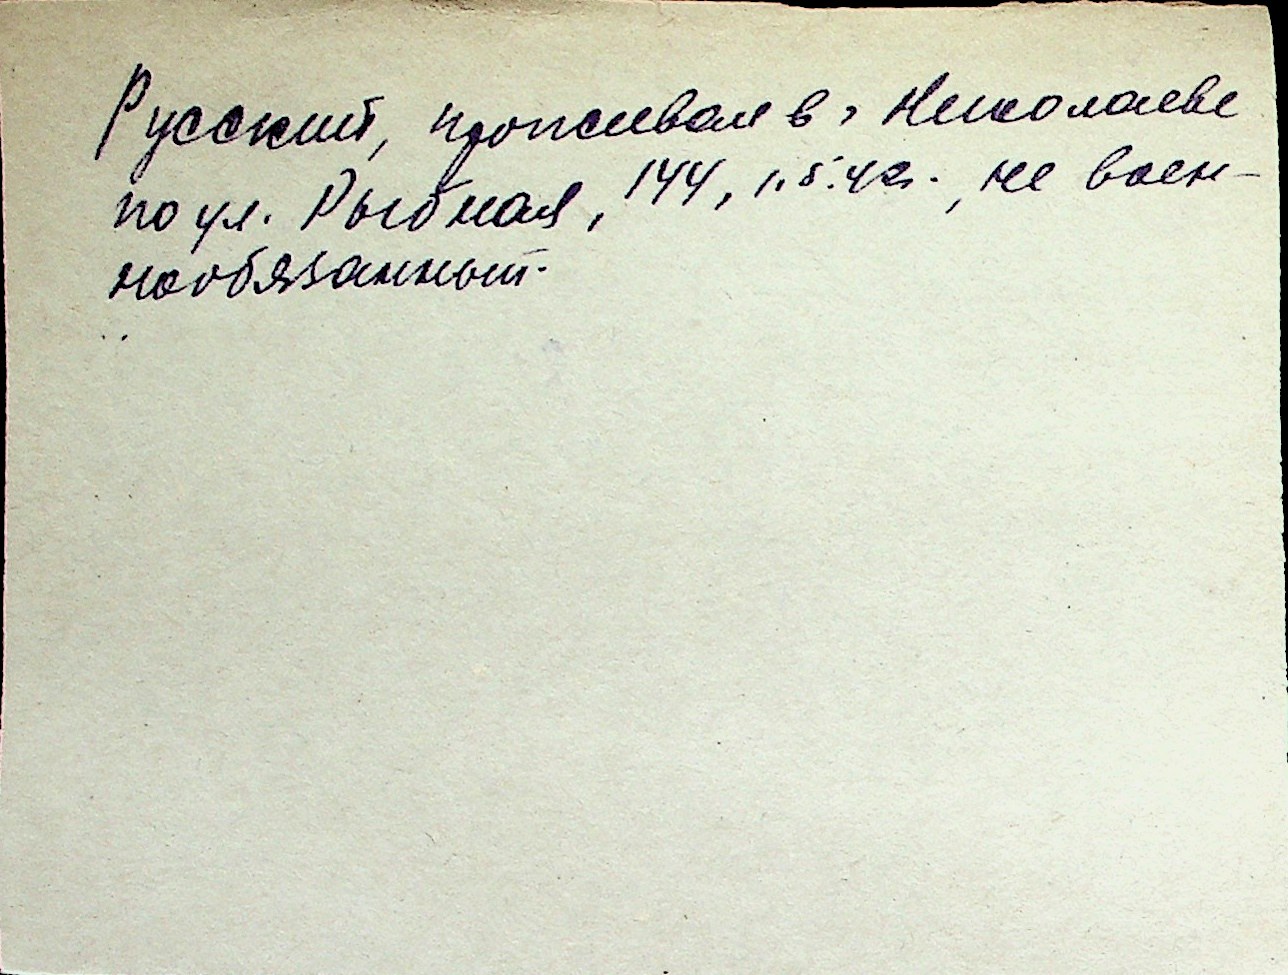 Русский, проживал в г. Николаеве
по ул. Рыбная, 144, 1.5.42г., не воен-
нообязанный.